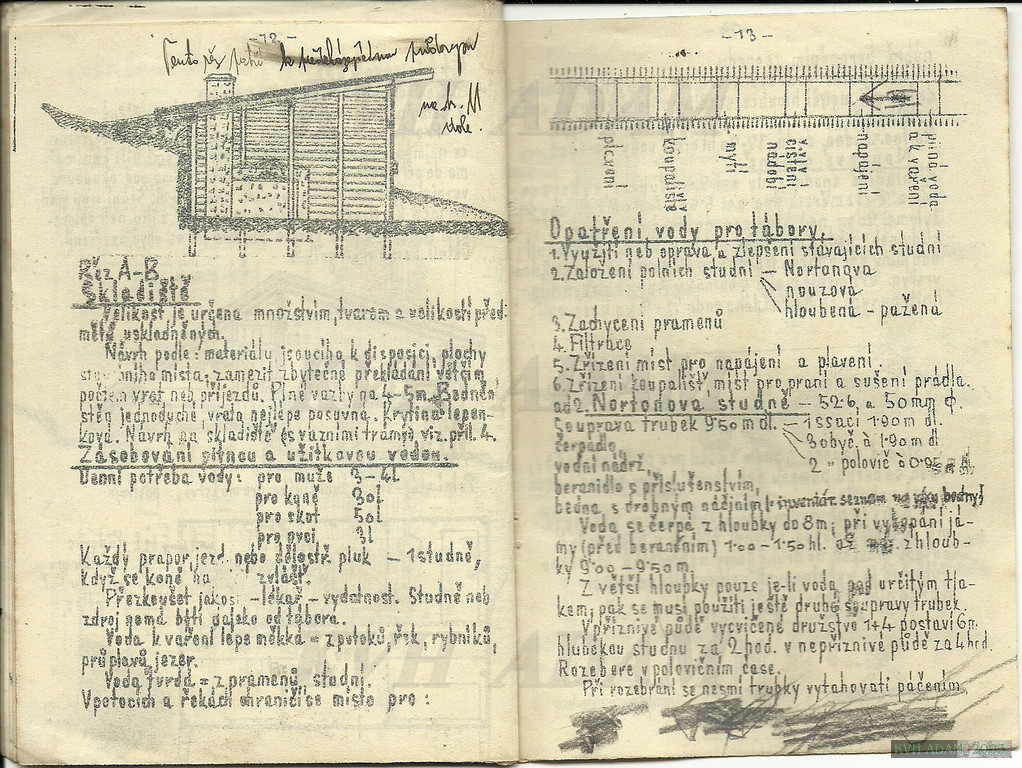 -12-
Tento řez patří k
na str. 11
dole.
Řez A-B.
Skladiště
Velikost je určena množstvím, tvarem a velikostí před-
mětů uskladněných.
Návrh podle: materiálu jsoucího k disposici, plochy
stavebního místa, zamezit zbytečné překládání větším
počtem vrat neb příjezdů. Plné vazby na 4-5m. Bednění
stěn jednoduché, vrata nejlépe posuvna. Krytina lepen-
ková. Návrh na skladiště (s vazními tramy) viz. příl. 4.
Zásobování pitnou a užitkovou vodou.
Denní potřeba vody: pro muže 3-4l
pro koně 30l
pro skot 50l
pro ovci 3l
Každý prapor jezd. nebo dělostř. pluk - 1 studně,
když se koně na zvlášť.
Přezkoušet jakost - lékař - vydatnost. Studně neb
zdroj nemá býti daleko od tábora.
Voda k vaření lépe měkká = z potoků, řek, rybníků,
průplavů, jezer.
Voda tvrdá = z pramenů, studní.
V potocích a řekách ohraničí se místo pro:
-13-
pitná voda
a k vaření
napájení
čistění
nádobí
mytí
koupaliště
plavení
Opatření vody pro tábory.
1. Využití neb oprava a zlepšení stávajících studní
2. Založení polních studní - Nortonova
nouzová
hloubená - pažená
3. Zachycení pramenů
4. Filtrace
5. Zřízení míst pro napájení a plavení.
6. Zřízení koupališť, míst pro praní a sušení prádla.
ad 2. Nortonova studně - 526 a 50 mm ϕ.
Souprava trubek 9·50 m dl. - 1 ssací 1·90m dl.
čerpadlo, 3 obyč. à 1·90 m dl.
vodní nádrž, 2 " polovič. à
beranidlo s příslušenstvím,
bedna s drobným nářadím (- inventár. seznam na víku bedny)
Voda se čerpá z hloubky do 8m; při vykopání já-
my (před beraněním) 1·00-1·50 hl. až z hloub-
ky 9·00-9·50m.
Z větší hloubky pouze je-li voda pod určitým tla-
kem, pak se musí použíti ještě druhé soupravy trubek.
V příznivé půdě vycvičené družstvo 1+4 postaví 6m
hlubokou studnu za 2 hod. v nepříznivé půdě za 4 hod.
Rozebere v polovičním čase.
Při rozebrání se nesmí trubky vytahovati páčením,
KVH ADAM